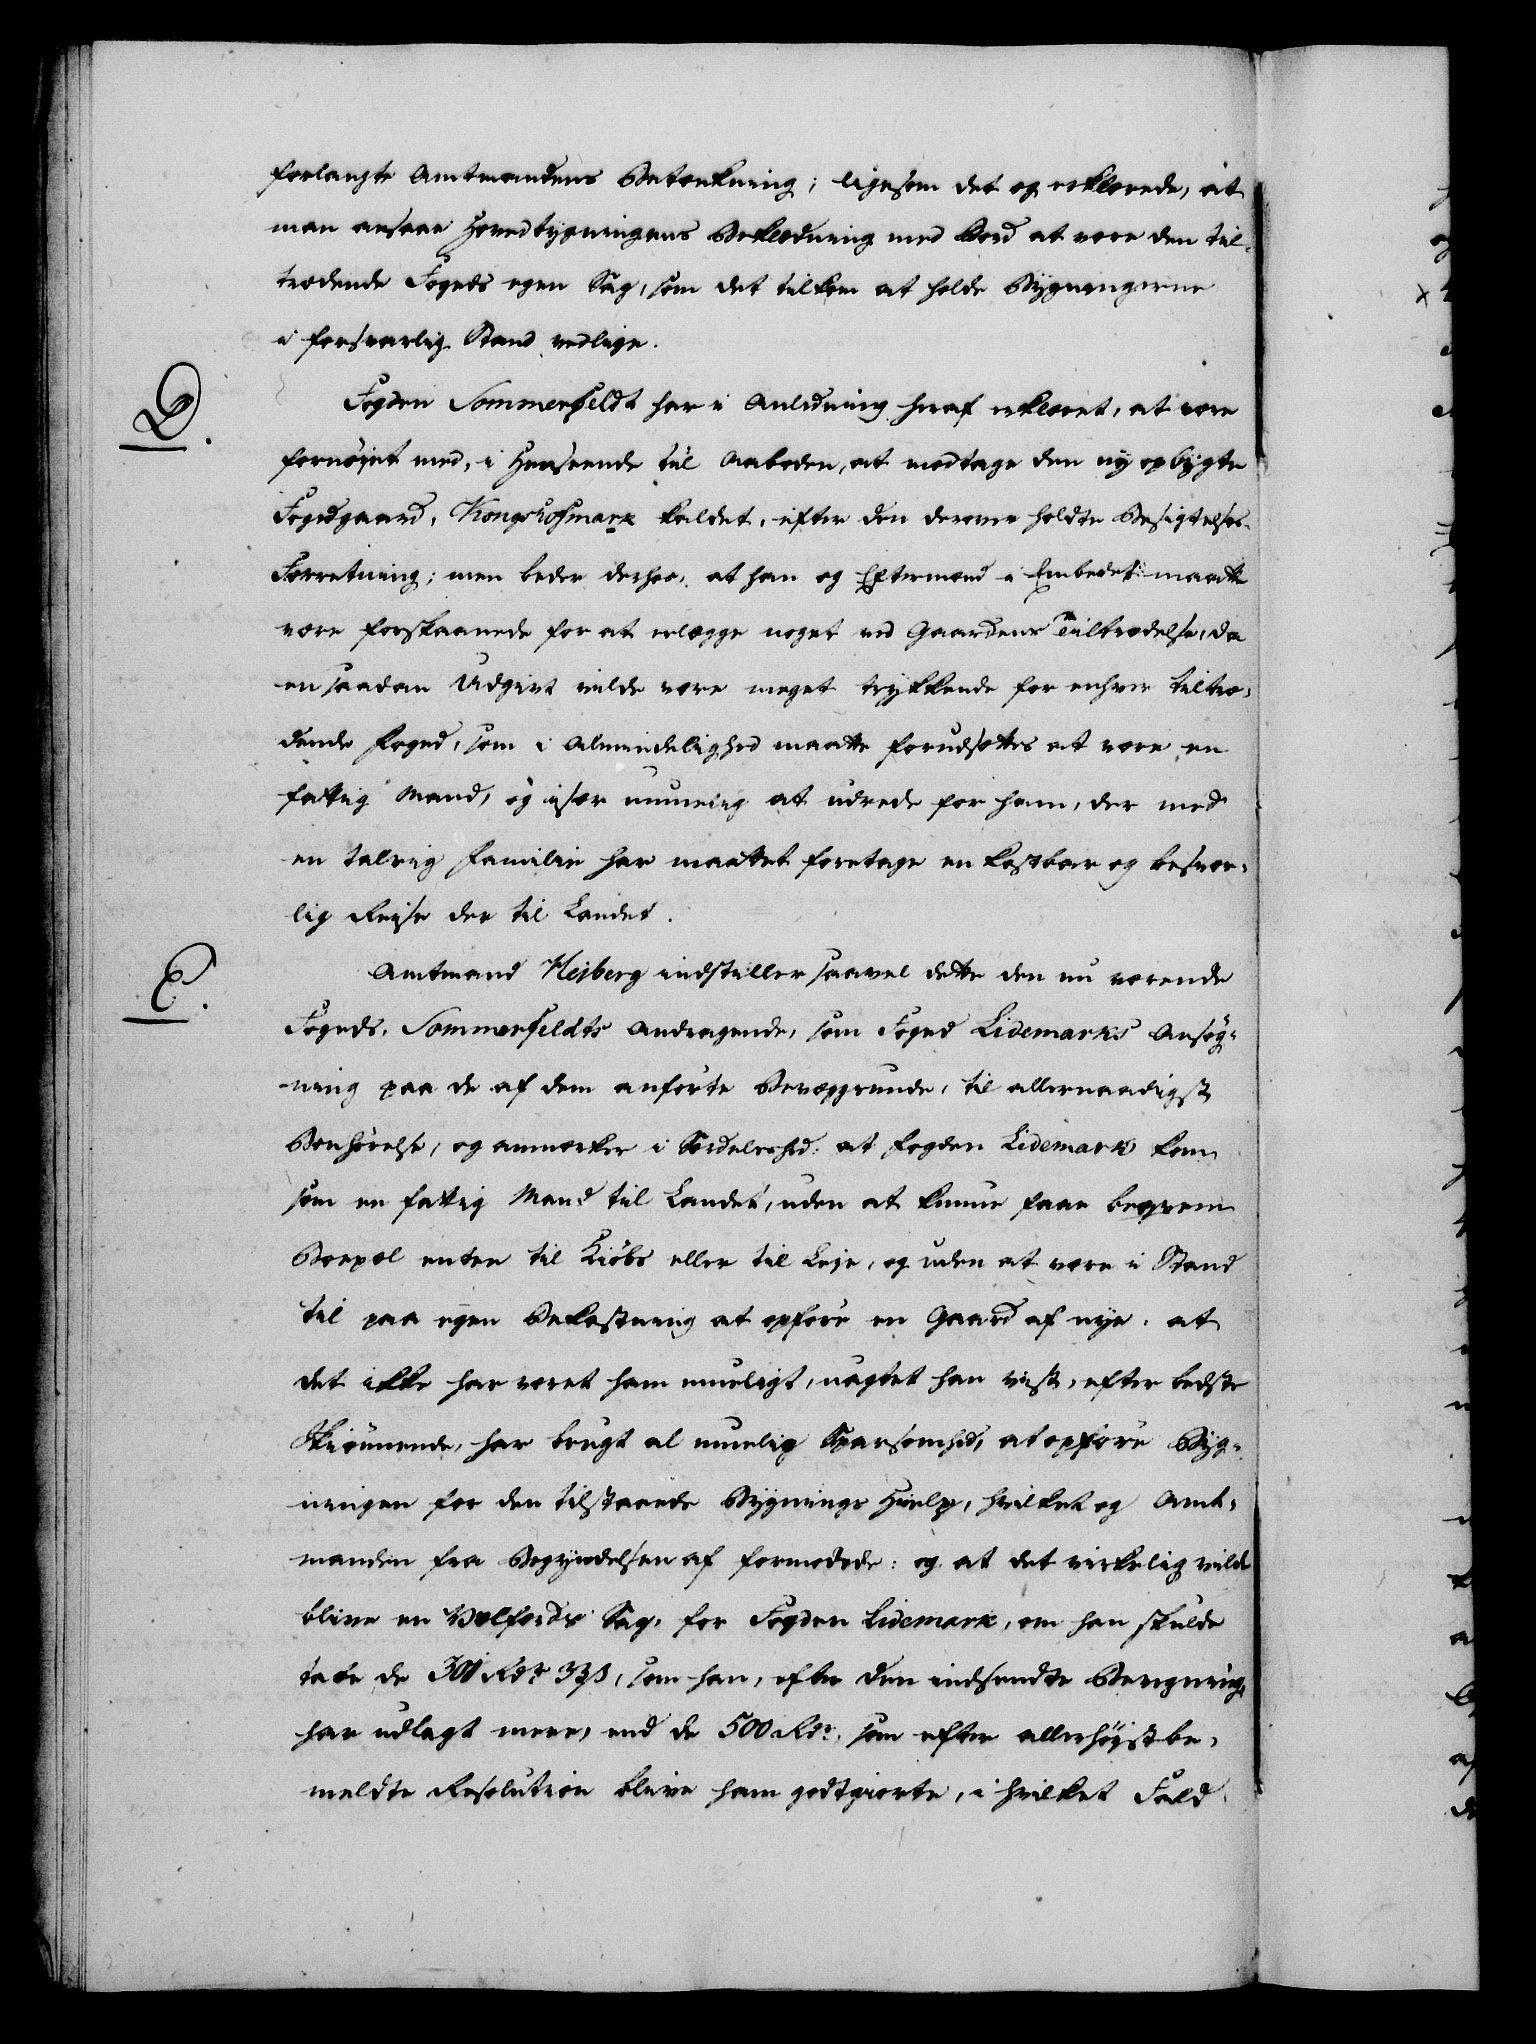 forlangte Amtmandens Betænkning; ligesom det og erklærede, at
man ansaae Hovedbygningens Beklædning med Bord at være den til-
trædende Fogeds egen Sag, som det tilkom at holde Bygningerne
i forsvarlig Stand vedlige.
D.
Fogden Sommerfeldt har i Anledning heraf erklæret, at være
fornøiet med, i Henseende til Aaboden, at modtage den ny opbygte
Fogedgaard, Kongshofmark kaldet, efter den derover holdte Besigtelses-
Forretning; men beder derhos, at han og Eftermænd i Embedet maatte
være forskaanede for at erlægge noget ved Gaardens Tiltrædelse, da
en saadan Udgivt vilde være meget trykkende for enhver tiltræ-
dende Foged, som i Almindelighed maatte forudsættes at være en
fattig Mand, og især umuelig at udrede for ham, der med
en talrig Familie har maattet foretage en kostbar og besvær-
lig Reise der til Landet.
E.
Amtmand Heiberg indstiller saavel dette den nu værende
Fogeds, Sommerfeldts Andragende, som Foged Lidemarks Ansøg-
ning paa de af dem anførte Bevæggrunde, til allernaadigst
Bønhørelse, og anmærker i Særdeleshed: at Fogden Lidemark kom
som en fattig Mand til Landet, uden at kunne faae beqvem
Boepæl enten til Kiøbs eller til Leje, og uden at være i Stand
til paa egen Bekostning at opføre en Gaard af nye. at
det ikke har været ham mueligt, uagtet han vist, efter bedste
Skiønnende, har brugt al muelig Sparsomhed, at opføre Byg-
ningen for den tilstaaede Bygnings Hielp, hvilket og Amt-
manden fra Begyndelsen af formodede: og at det virkelig vilde
blive en Velfærds Sag, for Fogden Lidemark, om han skulde
tabe de 301 Rdr 33 s, som han, efter den indsendte Beregning,
har udlagt mere, end de 500 Rdr, som efter allerhøistbe-
meldte Resolution blive ham godtgiorte, i hvilket Fald